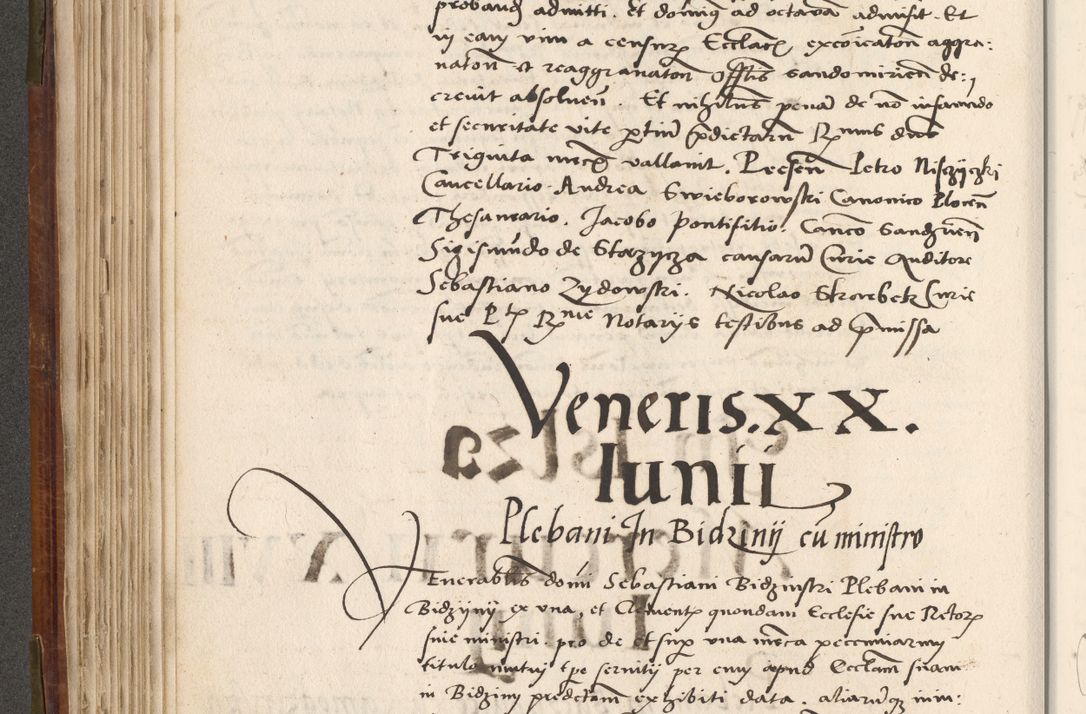 probandum admitti. Et dominus ad octavam admisit. Et
in eam vim a censuris Ecclesiasticis excommunicatoriis aggra:
natoriis et reaggravatoriis Offlis Sandomiriensis de:
crevit absolvendum. Et nihilominus penam de non inferendo
et securitate vite partium predictarum Rmus dnus
Triginta mrcis vallavit. Presen Petro Nisczyczki
Cancellario. Andrea Swieborowski Canonico Plocen
Thesaurario. Jacobo Pontifitio. Canco
Sigismundo de Stazycza causarum Curie Auditore
Sebastiano Zydowski. Nicolao Skarbek Curie
sue Rme Notariis testibus ad premissa
Veneris. XX.
Iunii
Plebani In Bidzinij cu ministro
Venerablis domi Sebastiani Bidzinski Plebani in
Bidzijnij ex una, et Clementis quondam Ecclesie sue Rectoris
sive ministri. pro de et super una mrca peccuniarum
titulo mutui tpe servitij per eum apud Ecclam suam
in Bidziny predictam exhibiti data. aliarumq